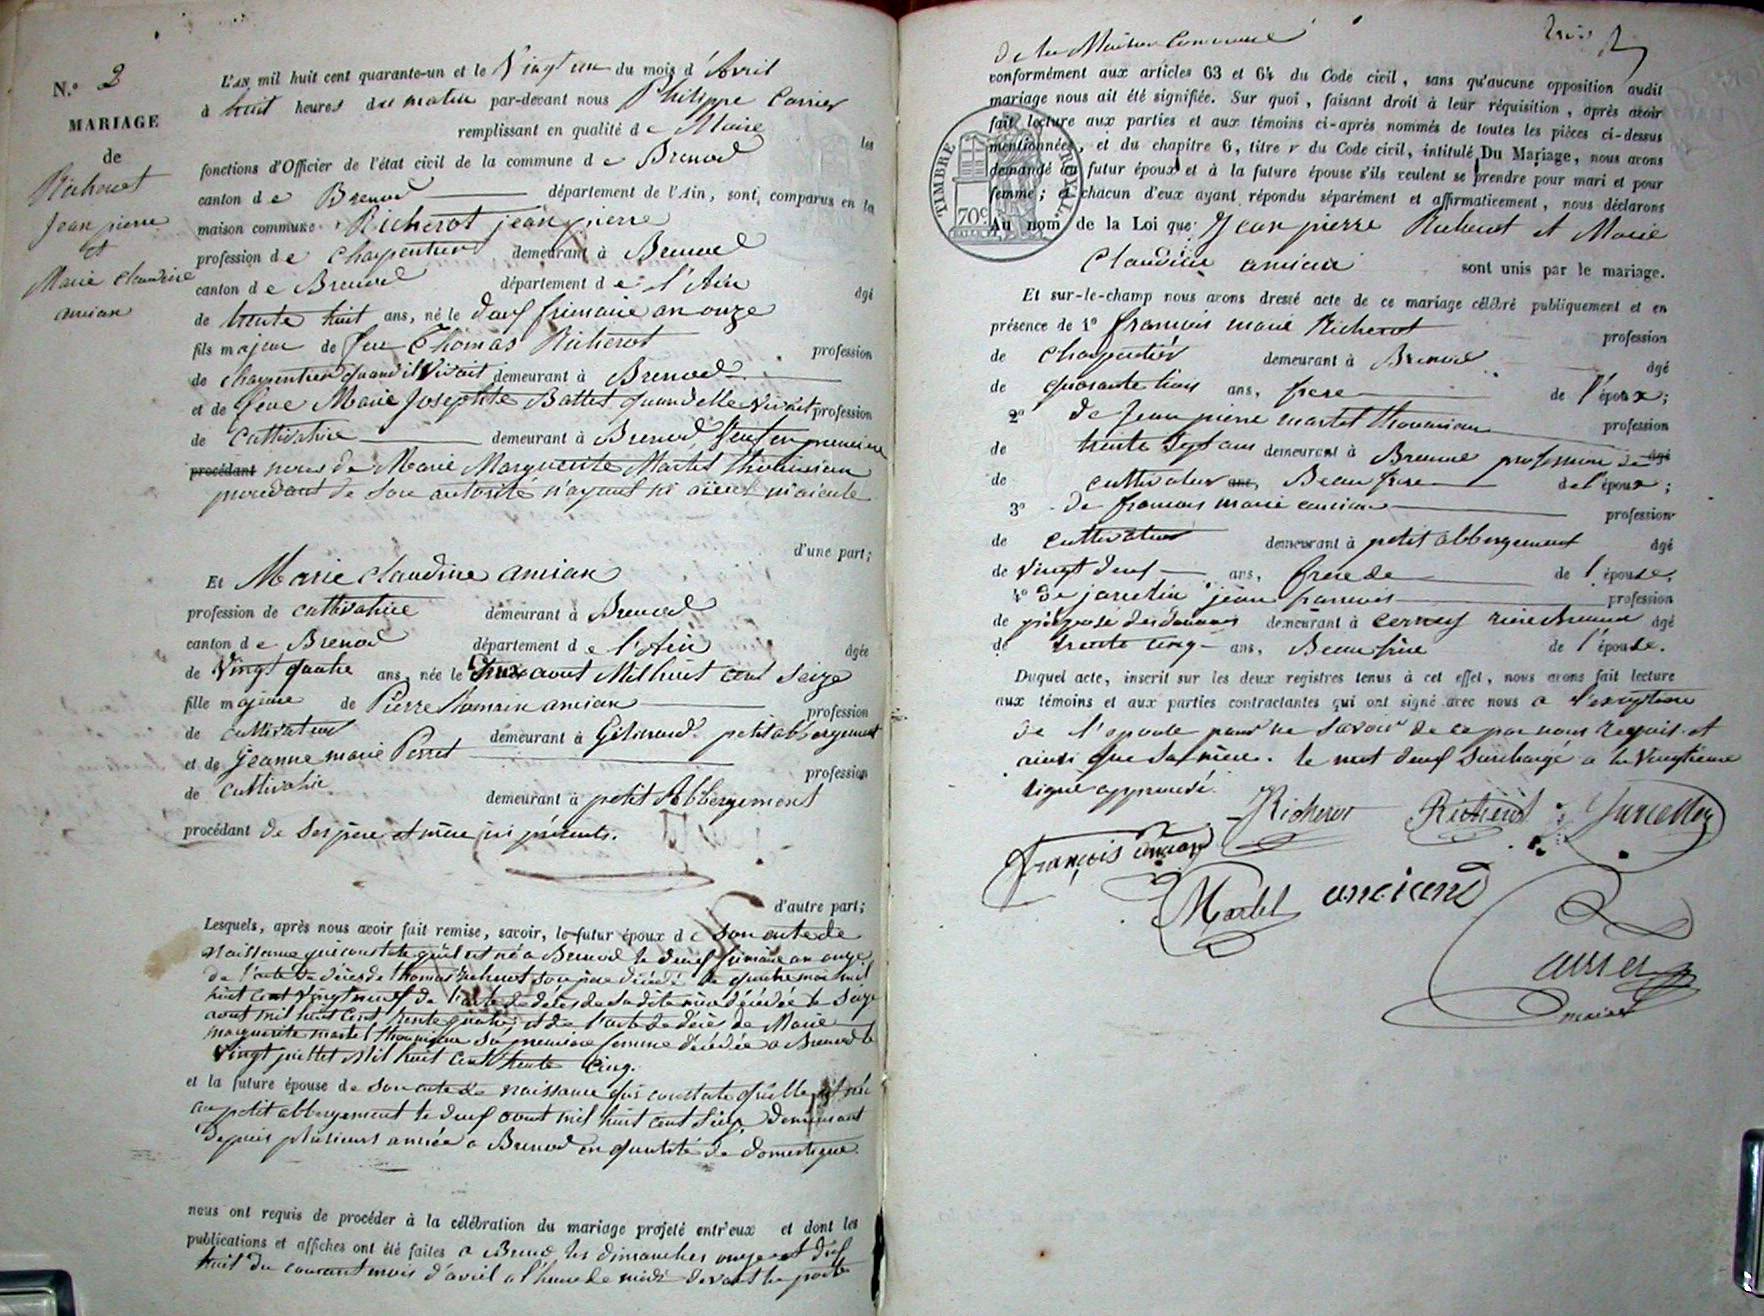 N.º 2
MARIAGE
de
Richerot
Jean pierre
et
Marie Claudine
ancian
L'AN mil huit cent quarante-un et le Vingt un du mois d'Avril
à huit heures du matin par-devant nous Philippe Carrier
remplissant en qualité de Maire les
fonctions d'Officier de l'état civil de la commune de Brenod
canton de Brenod département de l'Ain, sont comparus en la
maison commune Richerot jean pierre
profession de charpentier demeurant à Brenod
canton de Brenod département de l'Ain âgé
de trente huit ans, né le deux frimaire an onze
fils majeur de feu Thomas Richerot profession
de charpentier quand il vivait demeurant à Brenod
et de feue Marie Josephte Ballet quand elle vivait profession
de cultivatrice demeurant à Brenod, Veuf en premiere
procédant noces de Marie Marguerite Martel thouinian
procedant de son autorité n'ayant ni aïeul ni aieule
d'une part;
Et Marie claudine ancian
profession de cultivatrice demeurant à Brenod
canton de Brenod département de l'Ain âgée
de Vingt quatre ans, née le aout Mil huit cent seize
fille majeure de Pierre Romain ancian profession
de cultivateur demeurant à petit abbergement
et de Jeanne marie Perret profession
de cultivatrice demeurant à petit Abbergement
procédant de ses père et mère ici présents.
d'autre part;
Lesquels, après nous avoir fait remise, savoir, le futur époux de son acte de
naissance qui constate qu'il est né a Brenod le deux frimaire an onze
de l'acte de décès de thomas Richerot son père décédé le quatre mai mil
huit cent vingt neuf de l'acte de décès de sa dite mère décédée le seize
aout mil huit cent trente quatre, et de l'acte de décès de Marie
marguerite martel thouinian sa premiere femme décédée a Brenod le
Vingt juillet Mil huit cent trente cinq.
et la future épouse de son acte de naissance qui constate qu'elle est née
au petit abbergement le deux aout mil huit cent seize, demeurant
depuis plusieurs année a Brenod en qualité de domestique
nous ont requis de procéder à la célébration du mariage projeté entr'eux et dont les
publications et affiches ont été faites a Brenod les dimanches onze et dix
huit du courant mois d'avril a l'heure de midi devant la porte
de la Maison Commune
trois
conformément aux articles 63 et 64 du Code civil, sans qu'aucune opposition audit
mariage nous ait été signifiée. Sur quoi, faisant droit à leur réquisition, après avoir
fait lecture aux parties et aux témoins ci-après nommés de toutes les pièces ci-dessus
mentionnées, et du chapitre 6, titre v du Code civil, intitulé Du Mariage, nous avons
demandé au futur époux et à la future épouse s'ils veulent se prendre pour mari et pour
femme; et chacun d'eux ayant répondu séparément et affirmativement, nous déclarons
Au nom de la Loi que Jean pierre Richerot et Marie
Claudine ancian sont unis par le mariage.
TIMBRE ROYAL
70c
Et sur-le-champ nous avons dressé acte de ce mariage célébré publiquement et en
présence de 1º francois marie Richerot profession
de charpentier demeurant à Brenod âgé
de quarante trois ans, frere de l'époux;
2º de Jean pierre martel thouinian profession
de trente sept ans demeurant à Brenod profession de âgé
de cultivateur ans, Beau frere de l'époux;
3º de francois marie ancian profession
de cultivateur demeurant à petit abbergement âgé
de Vingt deux ans, frere de de l'épouse,
4º De jancelin jean francois profession
de préposé des douanes demeurant à âgé
de trente cinq ans, Beau frère de l'épouse.
Duquel acte, inscrit sur les deux registres tenus à cet effet, nous avons fait lecture
aux témoins et aux parties contractantes qui ont signé avec nous a l'exception
de l'epouse pour ne savoir de ce par nous requis et
ainsi que sa mère. le mot deux surchargé a la Vingtieme
ligne approuvé.
Richerot Richerot Jancelin
françois ancian
Martel anciand
Carrier
maire